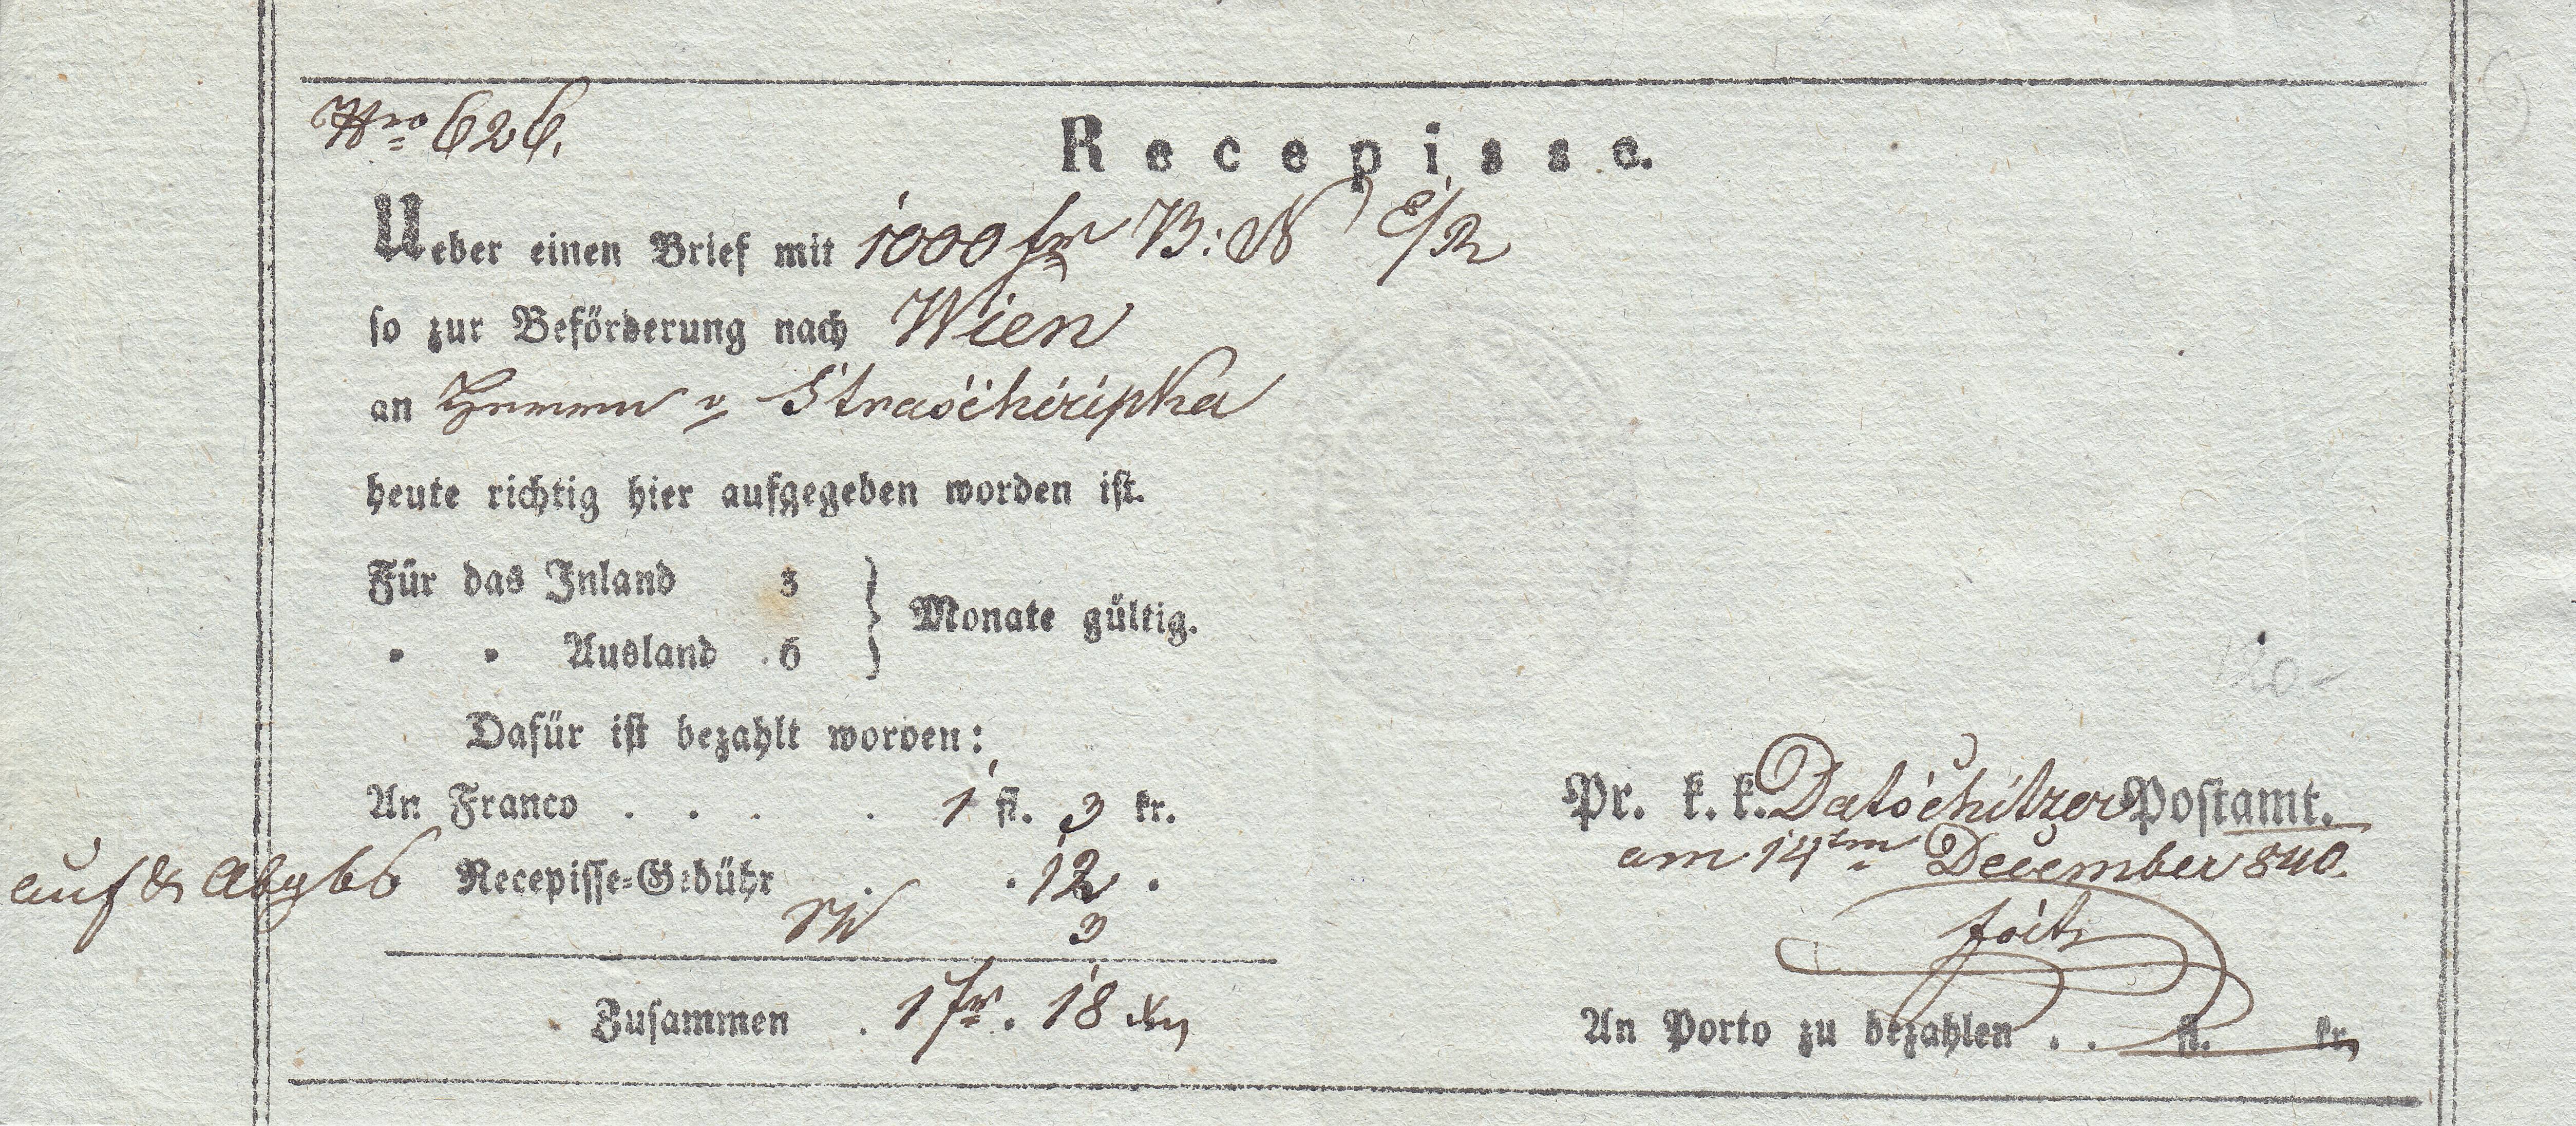 Nro 626.
Recepisse.
Ueber einen Brief mit 1000 fr B: N
so zur Beförderung nach Wien
an Herrn v Straschiripka
heute richtig hier aufgegeben worden ist.
Für das Inland 3 } Monate gültig.
" " Ausland . 6
Dafür ist bezahlt worden:
An Franco . . . . 1 fl. 3 kr.
auf & Abgbs Recepisse-Gebühr . . 12 .
3
Zusammen . 1 fr. 18 xr
Pr. k. k. Datschitzer Postamt.
am 14tn December 840.
An Porto zu bezahlen . . fl. kr.
120.-